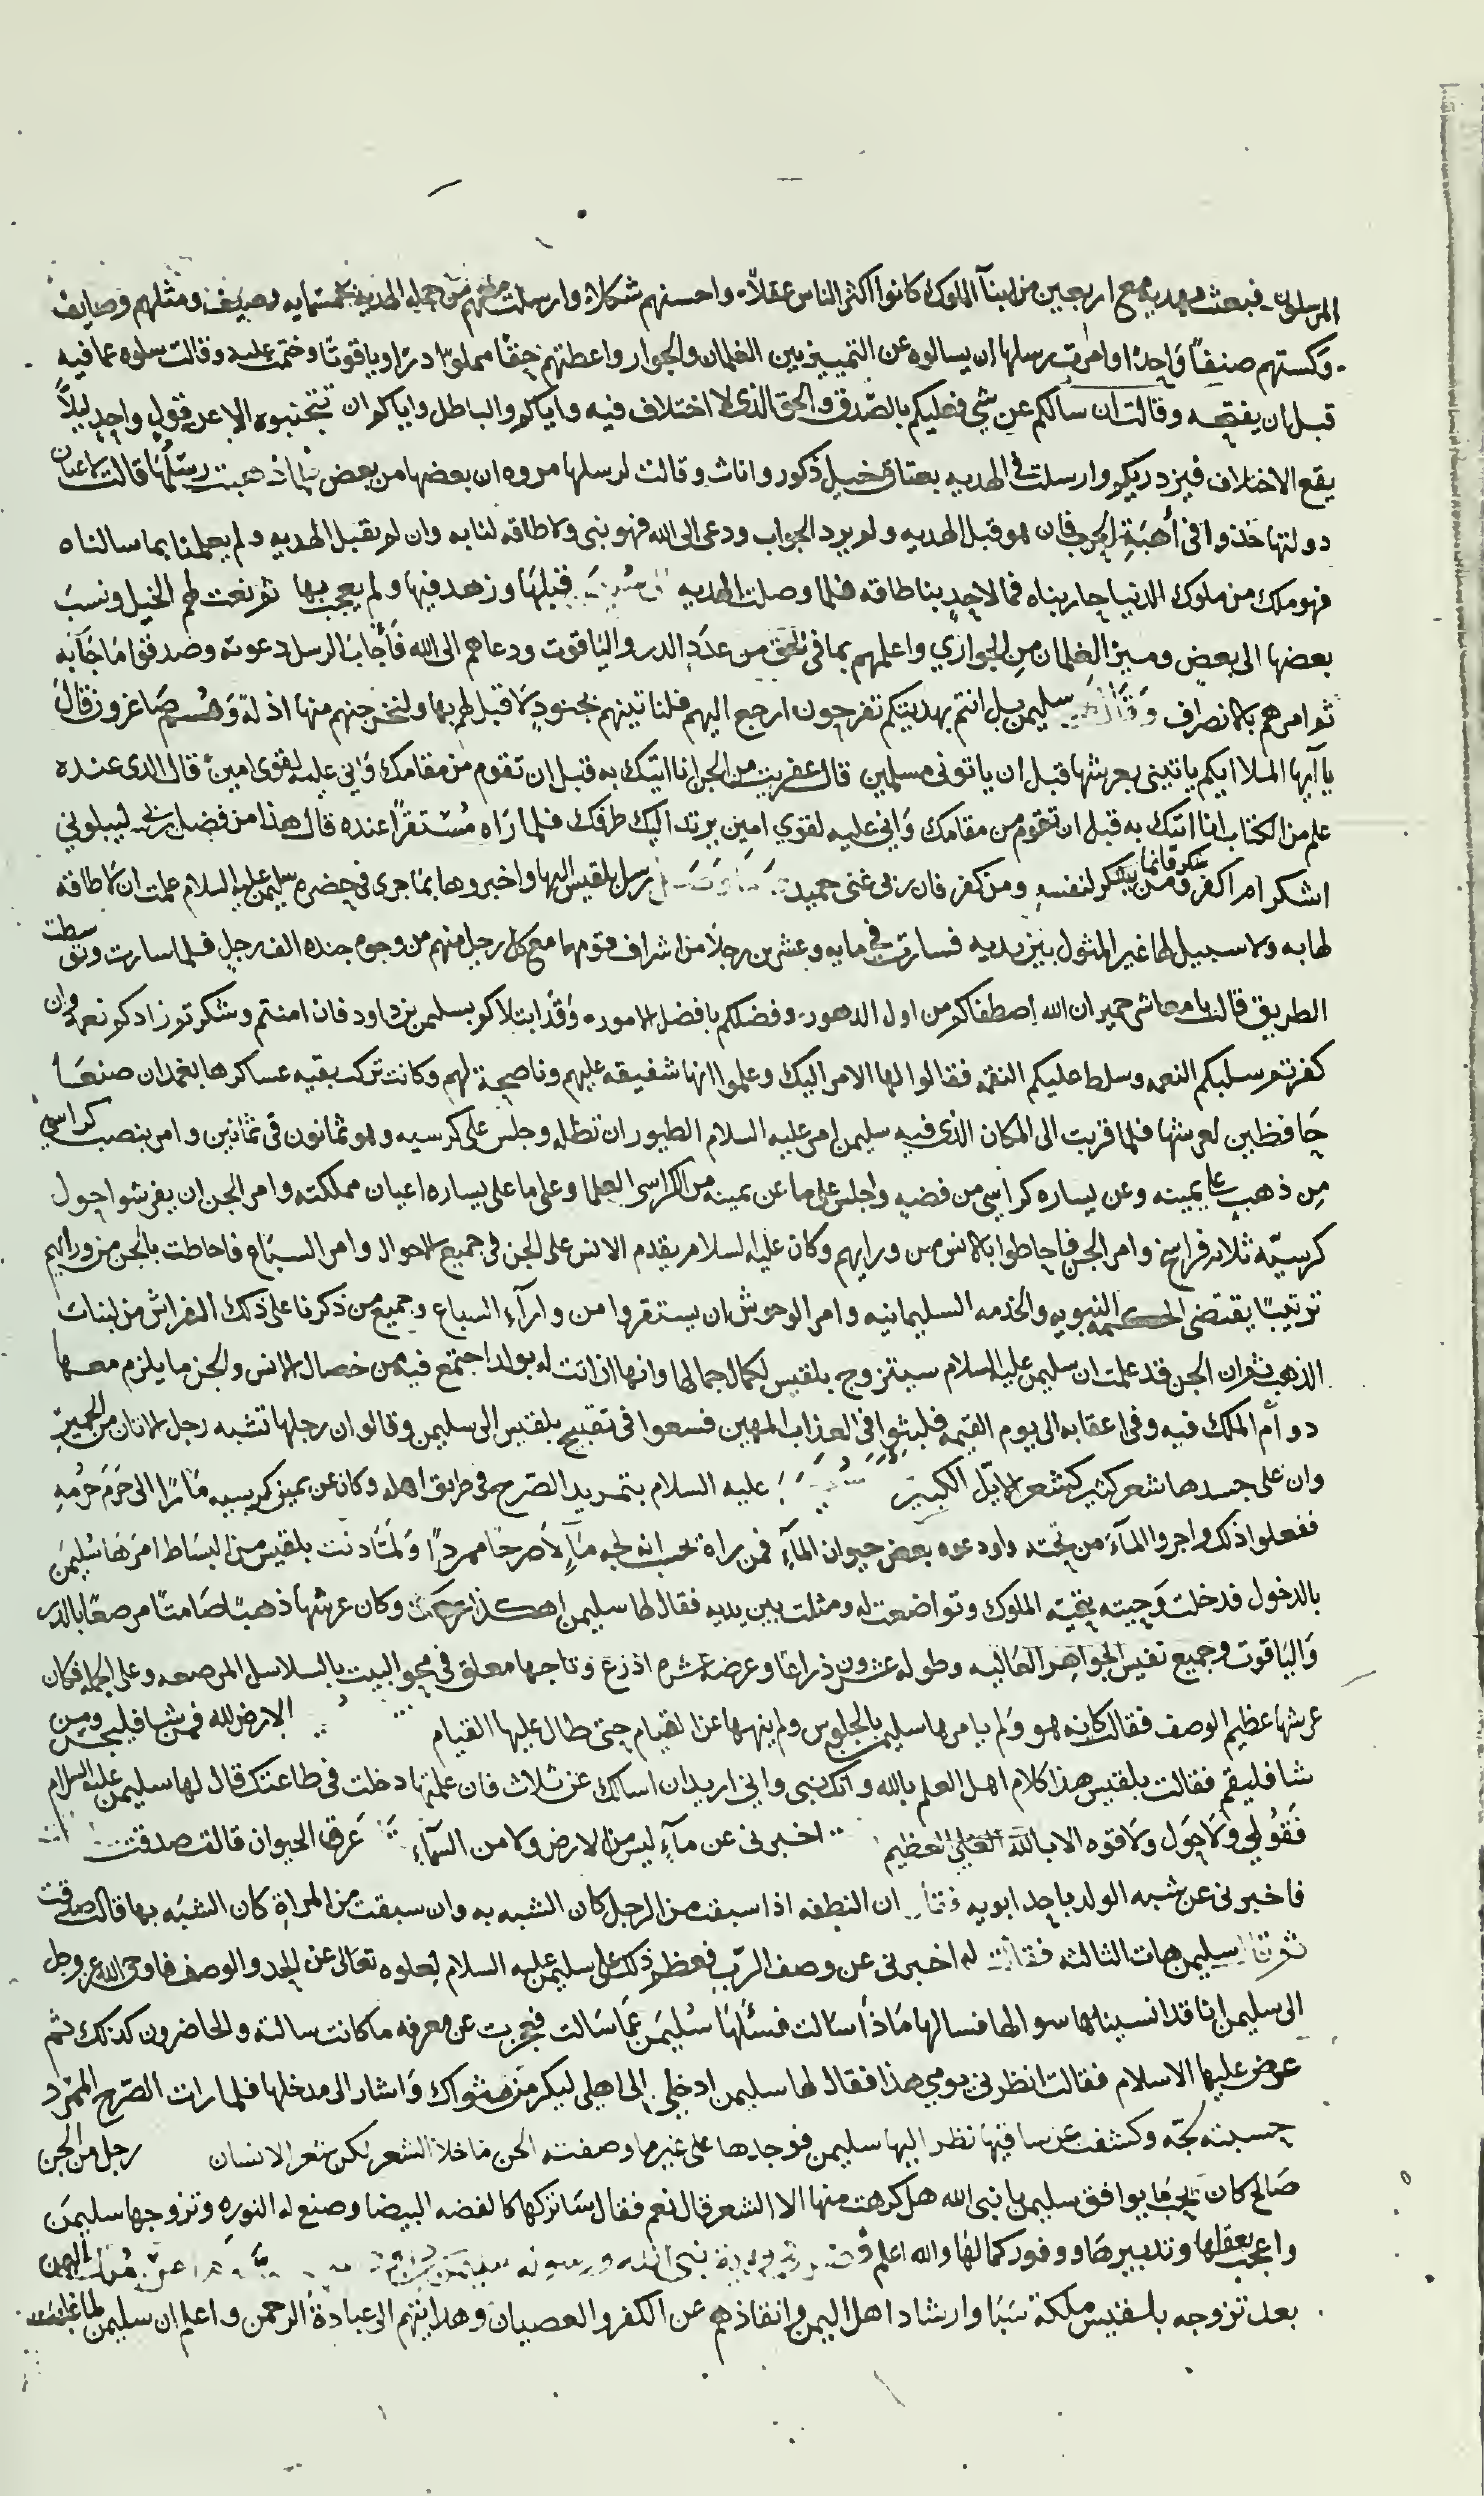 المرسلون فبعثت بهديه مع اربعين من ابنآ الملوك كانوا اكثر الناس عقلاً واحسنهم شكلاً وارسلت معهم من جمله الهديه خمسمايه وصيف ومثلهم وصايف
وكستهم صنفًا وَاحِدًا وامرت رسلها ان يسالوه عن التمييز بين الغلمان والجوار واعطتهم حِقًا مملوا درًا وياقوتًا وختمت عليه وقالت سلوه عما فيه
قبل ان يفتحه وقالت ان سالكم عن شي فعليكم بالصدق والحق الذى لا اختلاف فيه واياكم والباطل واياكم ان تجنبوه الا عن قول واحد ليلاً
يقع الاختلاف فيزدريكم وارسلت فى الهديه بعتاق خيل ذكور واناث وقالت لرسلها مروه ان بعضها من بعض ذهبت رسلُها قالت لاعيان
دولتها خذوا فى أُهبَةِ الحرب فان هو قبل الهديه ولم يرد الجواب ودعى الى الله فهو نبى ولا طاقه لنا به وان لم يقبل الهديه ولم يعملنا بما سالناه
فهو ملك من ملوك الدنيا حاربناه فما لاحدٍ بنا طاقه فلما وصلت الهديه قبلهَا وزهد فيها ولم يعجب بها ثم نعت لهم الخيل ونسبَ
بعضها الى بعض وميز الغلمان من الجوازي واعلمهم بما فى الحق من عدَدِ الدر والياقوت ودعاهم الى الله فَأجَابَ الرسل دعوته وصدقوا مَا جَآ به
ثم امرهم بالانصراف وقال سليمن بل انتم بهديتكم تفرحون ارجع اليهم فلناتينهم بجنودٍ لا قبل لهم بها ولنخرجنهم منها اذلة وَهُم صَاغرون قَالَ
يا آيها الملا ايكم ياتينى بعرشها قبل ان ياتونى مسلمين قال عفريت من الجن انا اتيك به قبل ان تقوم من مقامك وَاني عليه لقوى امينٌ قال الذى عنده
علم من الكتاب انا اتيك به قبل ان تقوم من مقامك وَانى عليه لقوي امين يرتد اليك طرفك فلما رَاه مُستقرًا عنده قال هذا من فضل ربى ليبلوني
اشكر ام اكفر ومن شكر فانما يشكر لنفسهِ ومن كفر فان ربى غنى حميد رسل بلقيس اليها واخبروها بمَا جرى فى حضره سليمن عليه السلام علمت ان لا طاقه
لها به ولا سبيل لها غير المثول بين يديه فسارت فى مايه وعشرين رجلاً من اشراف قومها مع كل رجلٍ منهم من وجوه جنده الف رجلٍ فلما سارت وتوسطت
الطريق قالت يا معاشر حمير ان الله اصطفاكم من اول الدهور وفضلكم بافضل الامور وَقد ابتلاكم بسليمن بن داود فان امنتم وشكرتم زادكم نعمه وان
كفرتم سلبكم النعمه وسلط عليكم النقمه فقالوا لها الامر اليك وعلموا انها شفيقه عليهم وناصحة لهم وكانت تركت بقيه عساكرها بغمدان صنعَا
حَافظين لعرشها فلما قربت الى المكان الذى فيه سليمن امر عليه السلام الطيور ان تظله وجلس على كرسيه وهو ثمانون فى ثمانين وامر بنصب كراسى
من ذهب عن يمينه وعن يساره كراسى من فضيه واجلس على ما عن يمينه من الكراسى العلما وعلى ما على يساره اعيان مملكته وامر الجن ان يفرشوا حول
كرسيّه ثلاثه فراسخ وامر الجن فاحاطوا بالانس من ورايهم وكان عليه السلام يقدم الانس على الجن فى جميع الاحوال وامر السباع فاحاطت بالجن من ورايهم
ترتيبًا يقتضى الحكمه النبويه والخدمه السليمانيه وامر الوحوش ان يستقروا من وارآءِ السباع وجميع من ذكرنا على ذلك الفراش من لبنات
الذهب ثم ان الجن قد علمت ان سليمن عليه السلام سيتزوج بلقيس لكمال جمالها وانها ان اتت له بولدا اجتمع فيه من خصال الانس والجن ما يلزم معها
دوأم الملك فيه وفى اعقابه الى يوم القيمه فلبثوا فى العذاب المهين فسعوا فى تقبيح بلقيس الى سليمن وقالو ان رجلها تشبه رجل الاتان من الحمير
وان على جسدها شعر كثير كشعر الايّل الكبير عليه السلام بتمريد الصَرح فى طريق اهله وكان عن يمين كرسيه مَارًا الى حَرَم حَرمه
ففعلوا ذلك واجروا المآءَ من تحته واودعوه بعض حيوان المآءِ فمن راهُ يحسب انه لجه مآءٍ لا صَرحًا ممردًا وَلما دنت بلقيس من البساط امرَهَا سُليمَن
بالدخول فدخلت وَحيته بتحيَه الملوك وتواضعت له ومثلت بين يديه فقال لها سليمن اهكذا عرشك وكان عرشها ذهبًا صَامتًا مرصعًا بالدر
وَاليَاقوت وجميع نفيس الجواهِر العَاليه وطوله عشرون ذراعًا وعرضه عشره اذرع وتاجها معلق فى البيت بالسلاسل المرصعه وعلى الجمله فكان
عرشها عظيم الوصف فقالت كانه هو وَلم يامرها سليمن بالجلوس ولم ينهها عن القيام حتى طال عليها القيام الارض لله فمن شا فليجلس ومن
شا فليقم فقالت بلقيس هذا كلام اهل العلم بالله وانك نبى واني اريد ان اسالك عن ثلاث فان علمتها دخلت فى طاعتك قال لها سليمن عليه السلام
فَقوُلي ولا حَول ولا قوه الا بالله العلي العظيم اخبرنى عن مآءٍ ليس من الارض ولا من السمآءِ عَرق الحيوان قالت صدقت
فاخبرنى عن شبه الولد باحد ابويه ان النطفه اذا سبقت من الرجل كان الشبه به وان سبقت من المراةِ كان الشبَه بها قالت صدقت
ثم قال سليمن هات الثالثه فقالت له اخبرنى عن وصف الرّبِ فعظم ذلك على سليمن عليه السلام لعلوه تعالى عن الحد والوصف فاوحى الله عز وجل
الى سليمن انا قد انسيناها سوالها فسالها مَاذا سَالت فسئَلهَا سُليمَن عَما سَالت فعجزت عن معرفه ما كانت سالته والحاضرون كذلك ثم
عرض عليها الاسلام فقالت انظرنى يومي هذا فقال لها سليمن ادخلي الى اهلى ليكرمن مثواك وَاشار الى مدخلها فلما رات الصَرح الممرّد
حسبته لجة وكشفت عن ساقيهَا نظر اليها سليمن فوجدها على غير ما وصفته الجن ما خلا الشعر لكن شعر الانسان رجل من الجن
صَالح كان يوافق سليمن يا نبى الله هل كرهت منها الا الشعر قال نعم فقال سَاتركها كالفضه البيضا وصنع له النوره وتزوجها سليمَن
واعجب بعقلها وتدبيرهَا ووفور كمالهَا والله اعلم نبى الله
بعد تزوجه بلقيس ملكة سَبَا وارشاد اهل اليمن وانقاذهم عن الكفر والعصيان وهدايتهم الى عبادة الرحمن واعلم ان سليمن لما